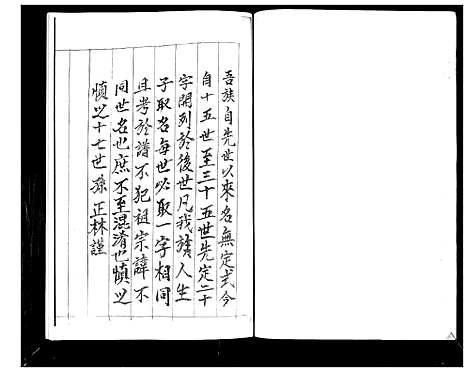 吾族自先世以來名無定式今
自十五世至三十五世先定二十
字開列於後世凡我族人生
子取名每世必取一字相同
且考於譜不犯祖宗諱不
同世名也庶不至混淆也慎之
慎之十七世孫正林謹